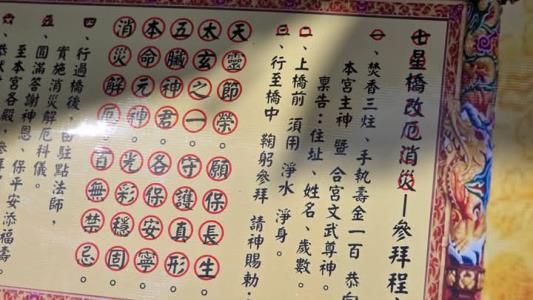 七星橋改厄消災—參拜程
一、焚香三炷、手執壽金一百 恭向
本宮主神 暨 合宮文武尊神。
稟告：住址、姓名、歲數。
二、上橋前 須用 淨水 淨身。
三、行至橋中 鞠躬參拜 請神賜勅：
天靈節榮 願保長生。
太玄之一 守護真形。
五臟神君 各保安寧。
本命元神 光彩穩固。
消災解厄 百無禁忌。
四、行過橋後，由駐點法師，
實施消災解厄科儀。
五、圓滿答謝神恩、保平安添福壽。
至本宮各殿